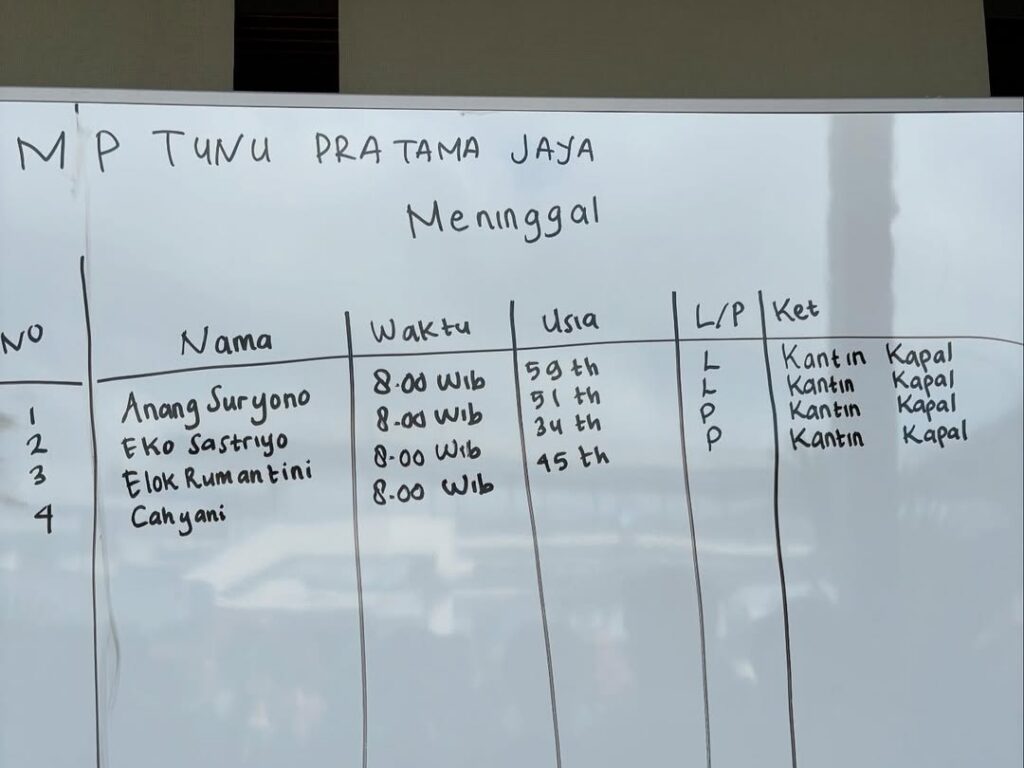 M P TUNU PRATAMA JAYA
Meninggal
NO Nama Waktu Usia L/P Ket
1 Anang Suryono 8.00 Wib 59 th L Kantin Kapal
2 Eko Sastriyo 8.00 Wib 51 th L Kantin Kapal
3 Elok Rumantini 8.00 Wib 34 th P Kantin Kapal
4 Cahyani 8.00 Wib 45 th P Kantin Kapal